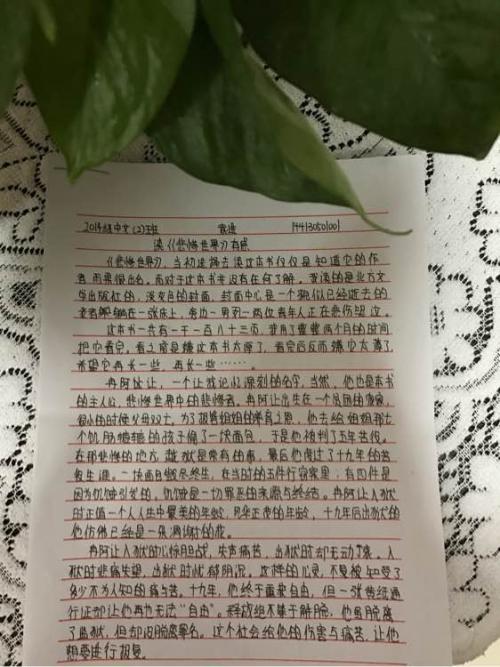 2014级中文(2)班 14413050100
读《悲惨世界》有感
《悲惨世界》，当初选择去读这本书仅仅是知道它的作
者雨果很出名，而对于这本书却没有任何了解，我读的是北方文
学出版社的，淡灰色的封面，封面中心是一个貌似已经逝去的
老者躺在一张床上，旁边一男一女两位青年人正在悲伤哭泣。
这本书一共有一千一百八十三页，我用了整整两个月的时间
把它看完。看之前是嫌这本书太厚了，看完后反而嫌它太薄了，
希望它再长一些，再长一些……。
冉阿让，一个让我记忆深刻的名字，当然，他也是本书
的主人公，悲惨世界中的悲惨者。冉阿让出生在一个贫困的家庭，
很小的时候父母双亡。为了报答姐姐的养育之恩，他去给姐姐那七
个饥肠辘辘的孩子偷了一块面包，于是他被判了五年苦役。
在那悲惨的地方，越狱是常有的事，最后他度过了十九年的苦
役生涯。一块面包毁尽终生，在当时的五件行窃案里，有四件是
因为饥饿引发的，饥饿是一切罪恶的来源与终结。冉阿让入狱
时正值一个人人生中最美的年龄，风华正茂的年龄，十九年后出狱的
他仿佛已经是一朵凋谢的花。
冉阿让入狱时心惊胆战，失声痛哭，出狱时却无动于衷。入
狱时悲痛失望，出狱时忧郁阴沉。这样的心灵，不见被知受了
多少不为人知的痛与苦。十九年，他终于重获自由，但一张黄纸通
行证却让他再也无法“自由”。释放绝不等于解脱，他虽脱离
了监狱，但却没脱离罪名。这个社会给他的伤害与痛苦，让他
想要进行报复。